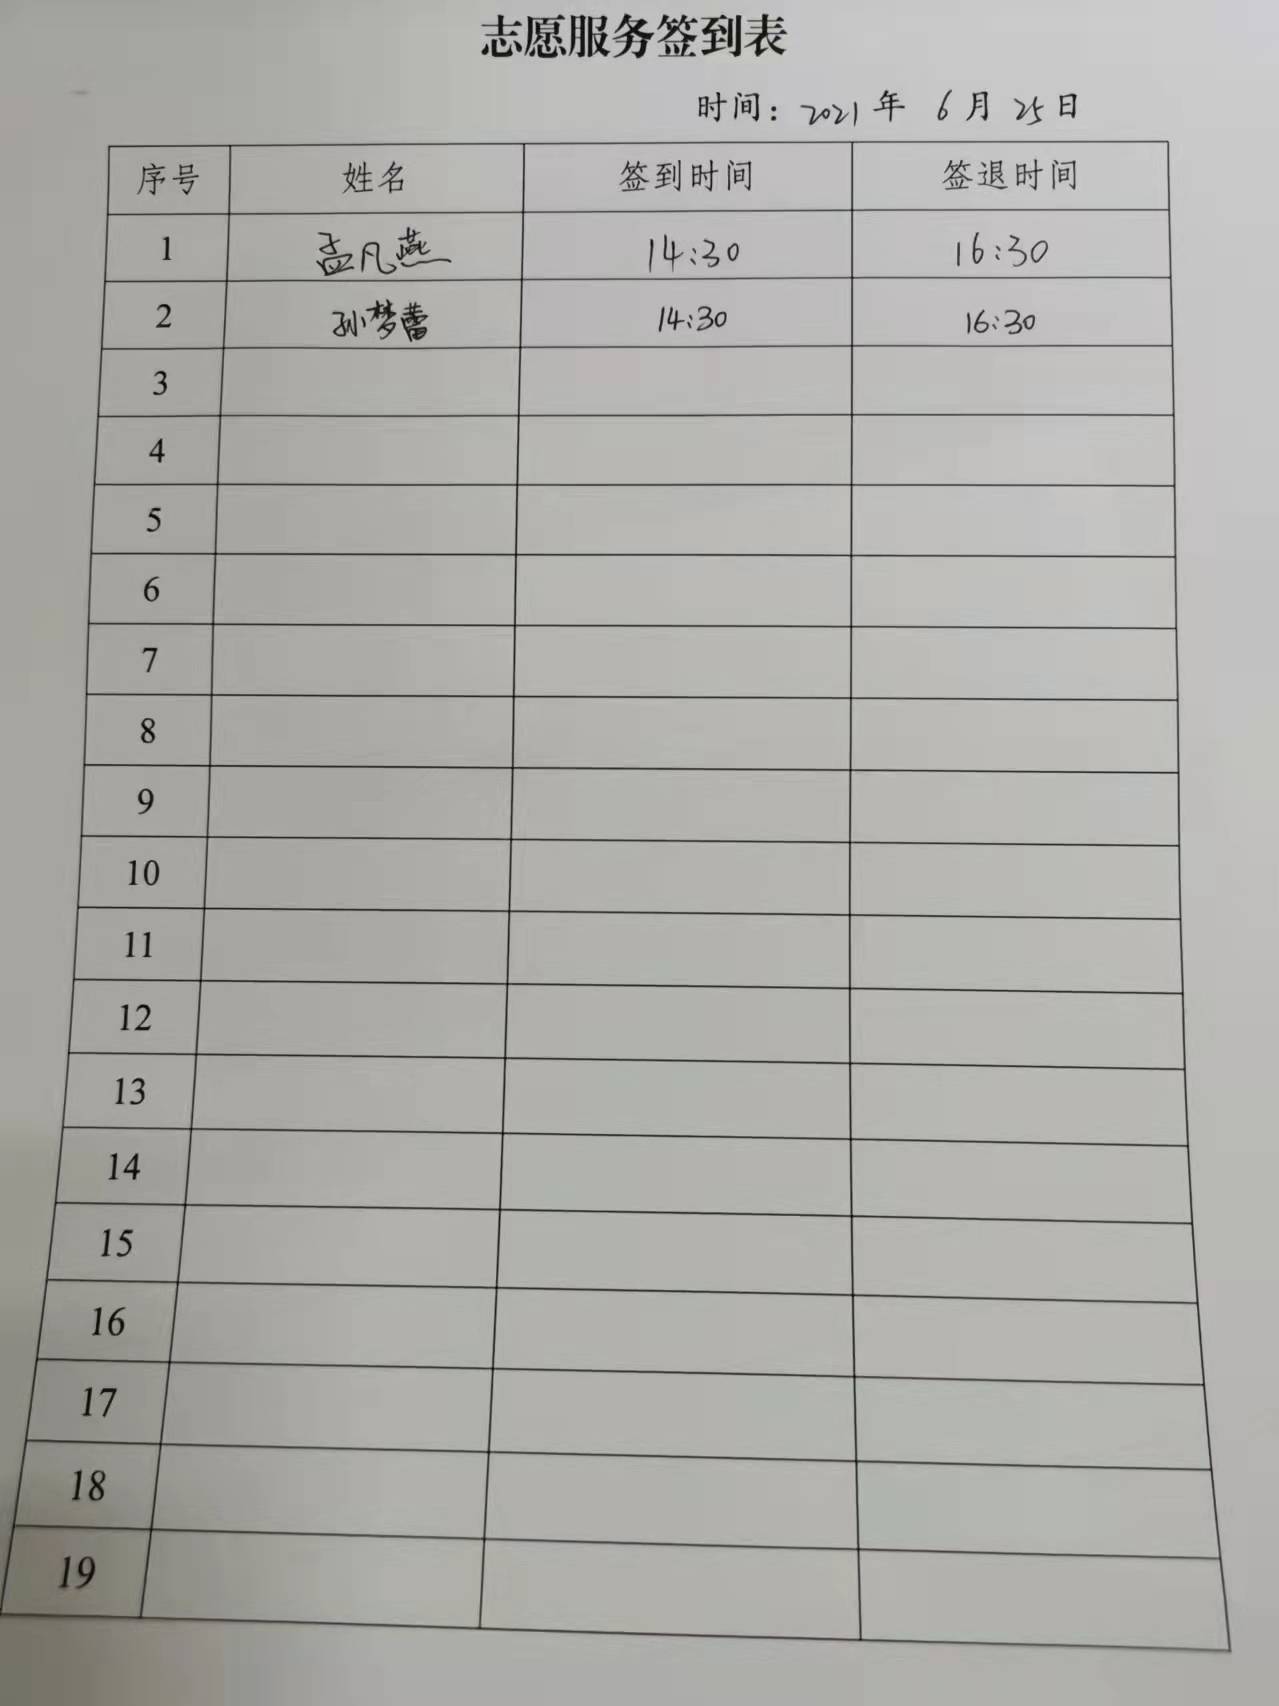 志愿服务签到表
时间: 2021 年 6 月 25 日
序号 姓名 签到时间 签退时间
1 孟凡燕 14:30 16:30
2 孙梦蕾 14:30 16:30
3
4
5
6
7
8
9
10
11
12
13
14
15
16
17
18
19